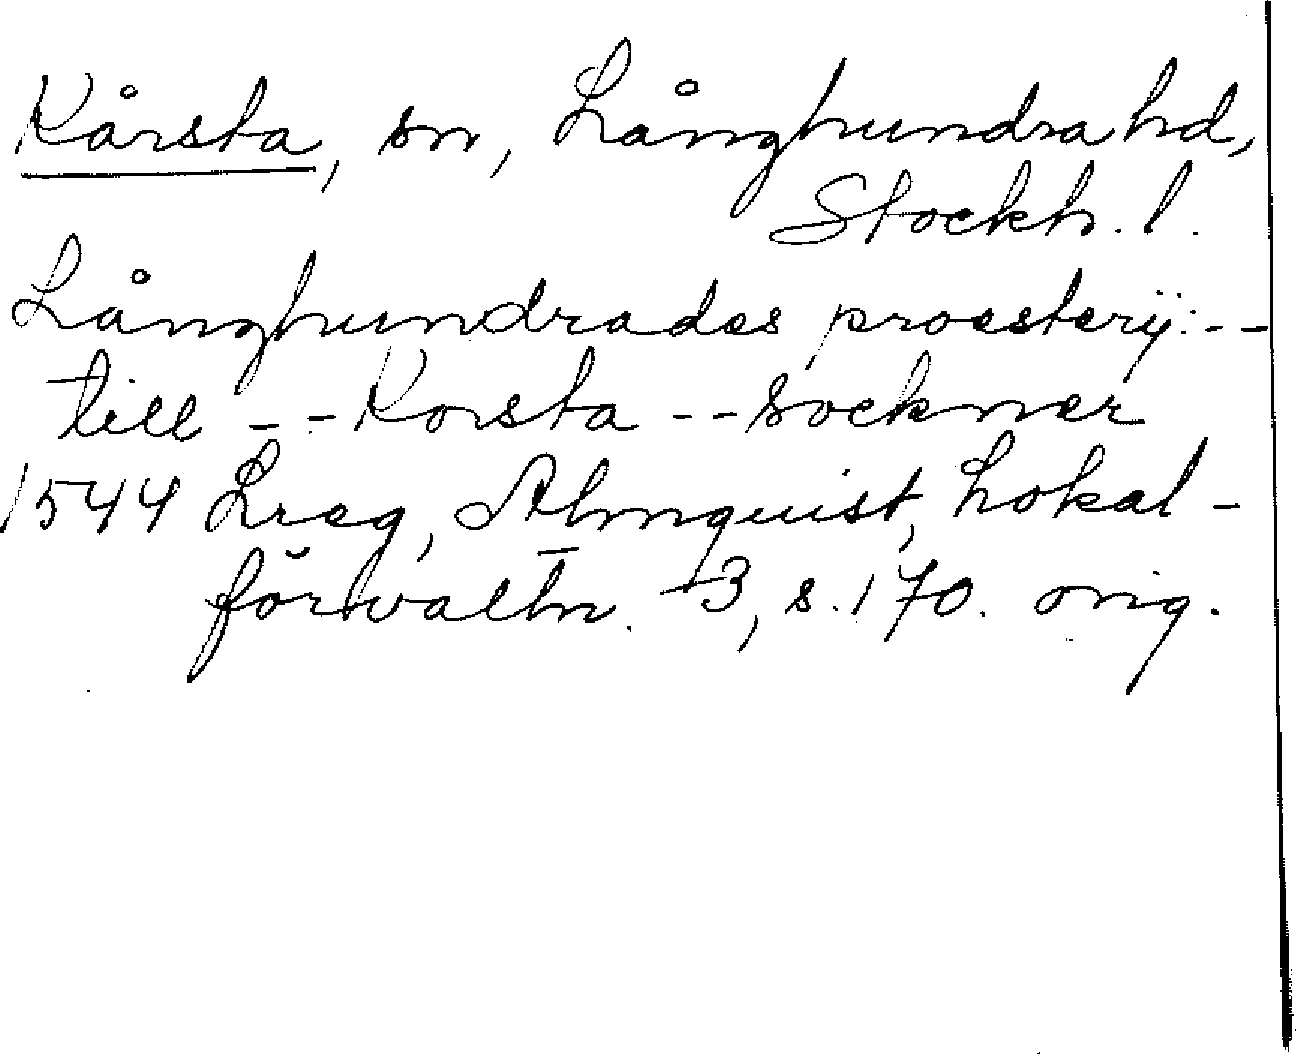 Kårsta, sn, Långhundra hd,
Stockh. l.
Långhundrades proesterij: - -
till - - Korsta - - socknar
1544 Lreg, Almquist, Lokal-
förvaltn. I3, s. 170. orig.